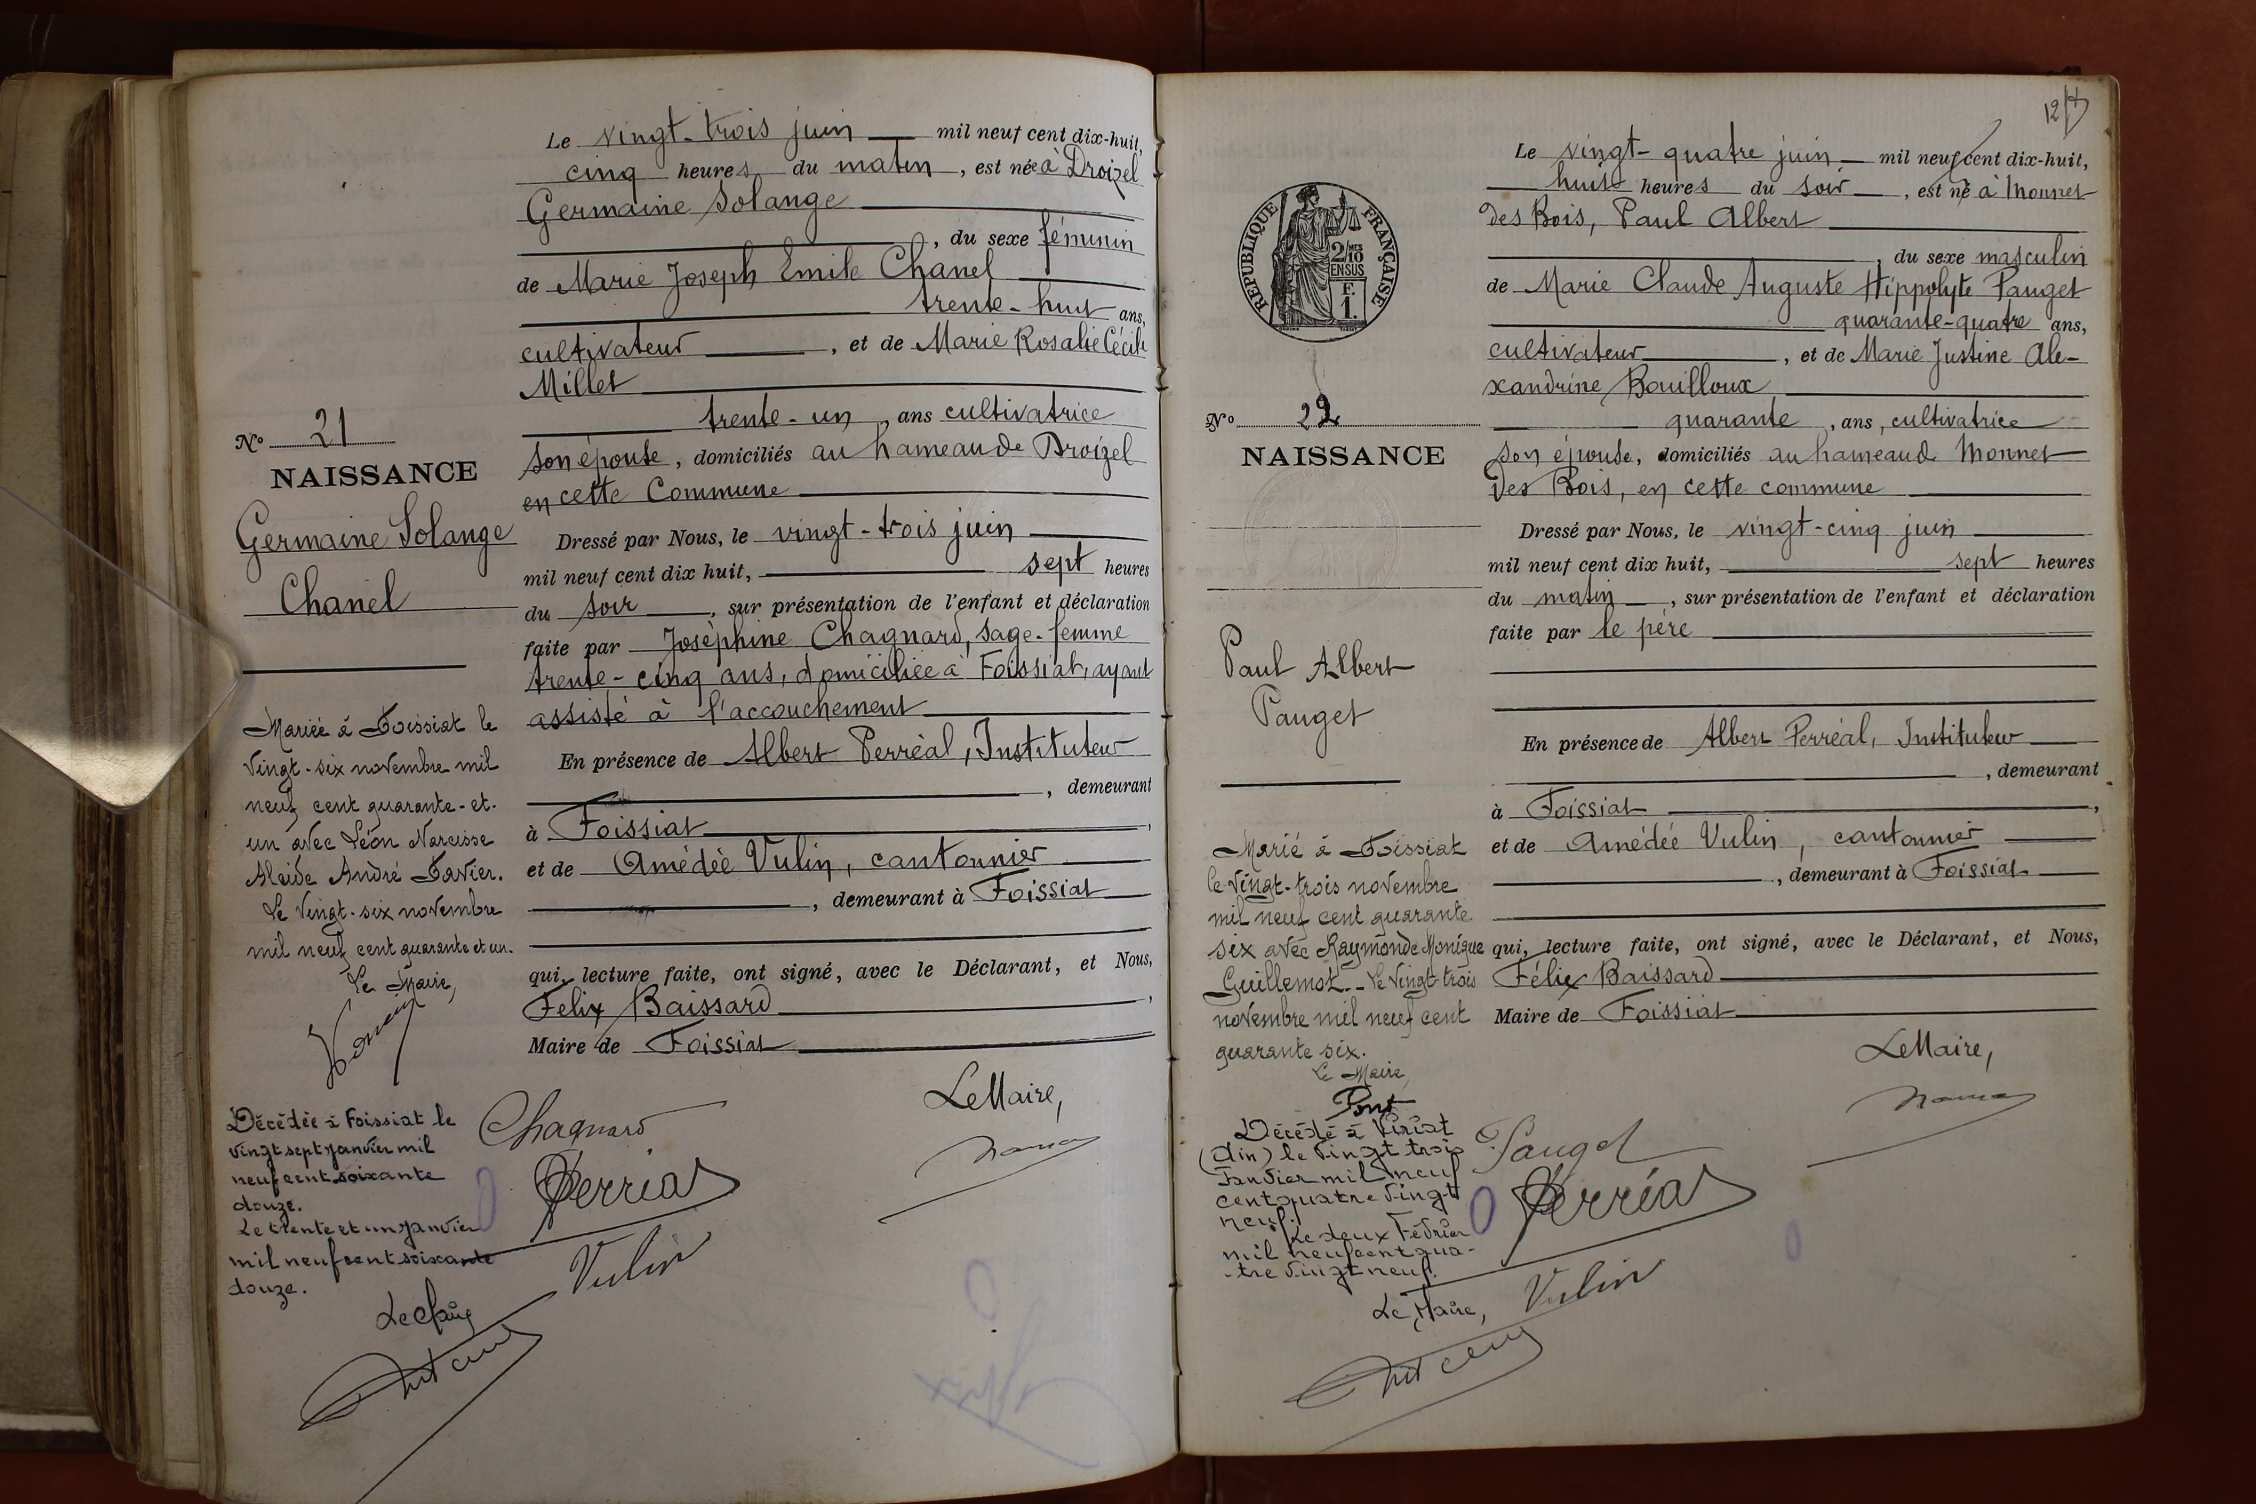 Le vingt-trois juin mil neuf cent dix-huit,
cinq heures du matin, est née à Droizel
Germaine Solange
, du sexe féminin
de Marie Joseph Emile Chanel
trente-huit ans,
cultivateur, et de Marie Rosalie Cécile
Millet
trente-un, ans cultivatrice
son épouse, domiciliés au hameau de Droizel
en cette Commune
Dressé par Nous, le vingt-trois juin
mil neuf cent dix huit, sept heures
du soir, sur présentation de l'enfant et déclaration
faite par Joséphine Chagnard, sage-femme
trente-cinq ans, domiciliée à Foissiat, ayant
assisté à l'accouchement
En présence de Albert Perréal, Instituteur
, demeurant
à Foissiat,
et de Amédée Vulin, cantonnier
, demeurant à Foissiat
qui, lecture faite, ont signé, avec le Déclarant, et Nous,
Félix Baissard,
Maire de Foissiat
Le Maire,
Chagnard
Perréal
Vulin
No 21
NAISSANCE
Germaine Solange
Chanel
Mariée à Foissiat le
vingt-six novembre mil
neuf cent quarante-et-
un avec Léon Narcisse
Alcide André Favier.
Le vingt-six novembre
mil neuf cent quarante et un.
Le Maire,
Décédée à Foissiat le
vingt sept janvier mil
neuf cent soixante
douze.
Le trente et un janvier
mil neuf cent soixante
douze.
Le Maire
12
Le vingt-quatre juin mil neuf cent dix-huit,
huit heures du soir, est né à Monnet
des Bois, Paul Albert
, du sexe masculin
de Marie Claude Auguste Hippolyte Pauget
quarante-quatre ans,
cultivateur, et de Marie Justine Ale-
xandrine Bouilloux
quarante, ans, cultivatrice
son épouse, domiciliés au hameau de Monnet
des Bois, en cette commune
Dressé par Nous, le vingt-cinq juin
mil neuf cent dix huit, sept heures
du matin, sur présentation de l'enfant et déclaration
faite par le père
En présence de Albert Perréal, Instituteur
, demeurant
à Foissiat,
et de Amédée Vulin, cantonnier
, demeurant à Foissiat
qui, lecture faite, ont signé, avec le Déclarant, et Nous,
Félix Baissard
Maire de Foissiat
Le Maire,
Pauget
Perréal
Vulin
RÉPUBLIQUE FRANÇAISE
2/10 MES
EN SUS
F.
1.
No 22
NAISSANCE
Paul Albert
Pauget
Marié à Foissiat
le vingt-trois novembre
mil neuf cent quarante
six avec Raymonde Monique
Guillemot. Le vingt-trois
novembre mil neuf cent
quarante six.
Le Maire,
Pont
Décédé à Viriat
(Ain) le vingt trois
Janvier mil neuf
cent quatre vingt
neuf.
Le deux Février
mil neuf cent qua-
-tre vingt neuf.
Le Maire,